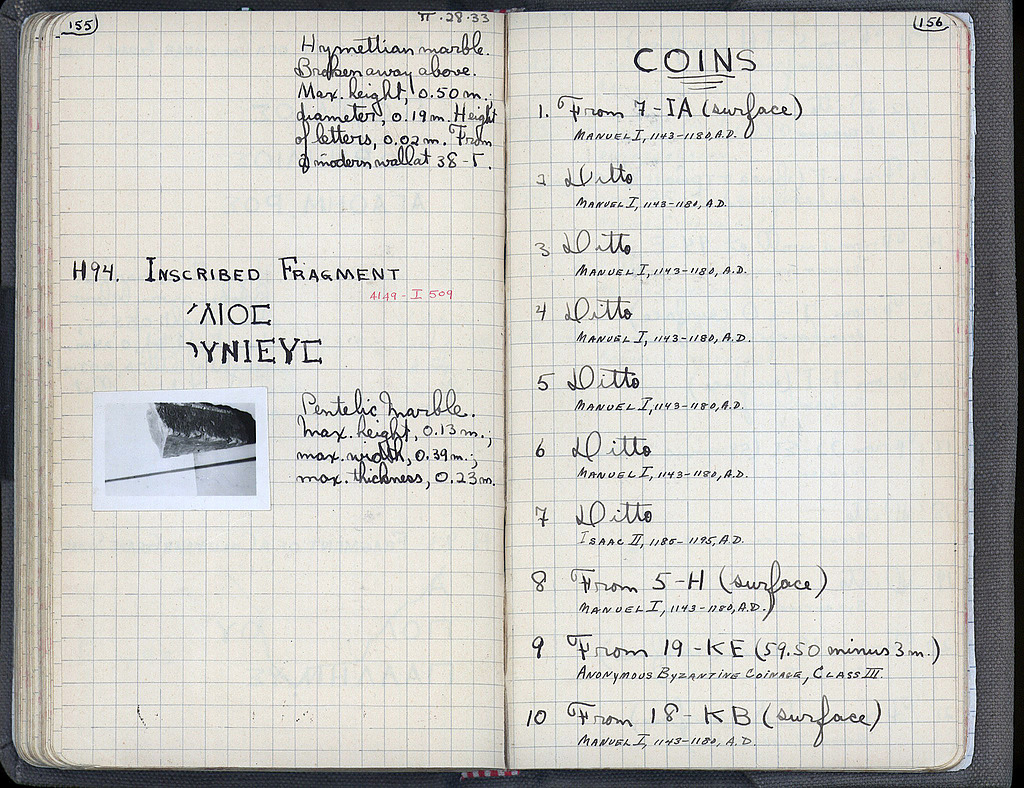 155
II·28·33
Hymettian marble.
Broken away above.
Max. height, 0.50 m.;
diameter, 0.19 m. Height
of letters, 0.02 m. From
a modern wall at 38-Γ.
H94. INSCRIBED FRAGMENT
4149 - I 509
ΛΙΟΣ
ΥΝΙΕΥΣ
Pentelic Marble.
Max. height, 0.13 m.;
max. width, 0.39 m.;
max. thickness, 0.23 m.
156
COINS
1. From 7-IA (surface)
MANUEL I, 1143-1180, A.D.
2 Ditto
MANUEL I, 1143-1180, A.D.
3 Ditto
MANUEL I, 1143-1180, A.D.
4 Ditto
MANUEL I, 1143-1180, A.D.
5 Ditto
MANUEL I, 1143-1180, A.D.
6 Ditto
MANUEL I, 1143-1180, A.D.
7 Ditto
ISAAC II, 1185-1195, A.D.
8 From 5-H (surface)
MANUEL I, 1143-1180, A.D.
9 From 19-KE (59.50 minus 3 m.)
ANONYMOUS BYZANTINE COINAGE, CLASS III.
10 From 18-KB (surface)
MANUEL I, 1143-1180, A.D.